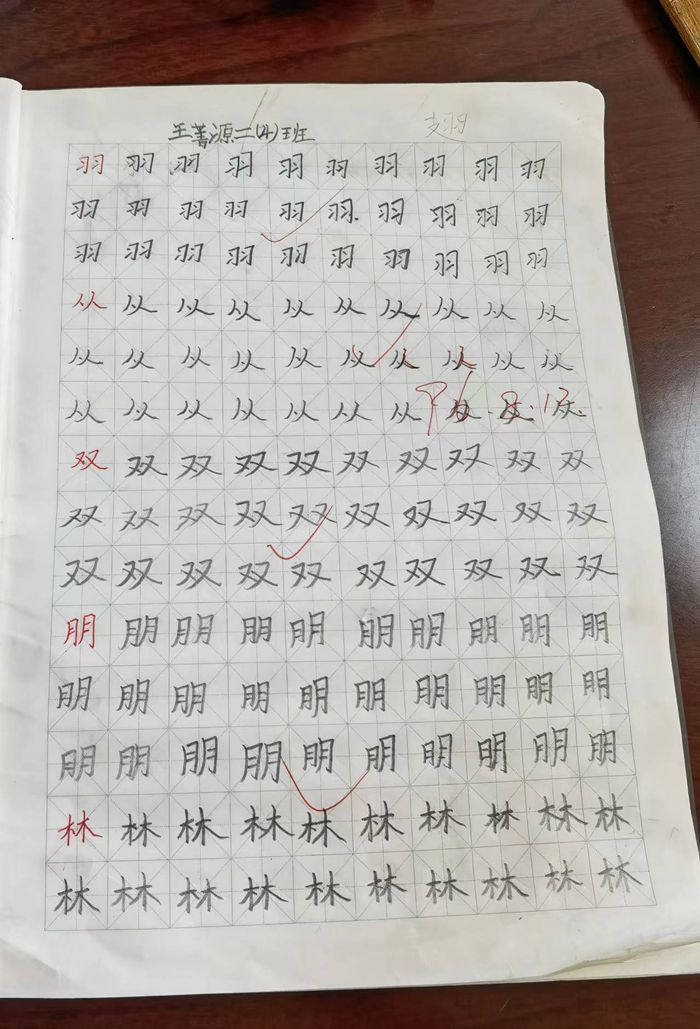 王善源二(4)班 翅
羽羽羽羽羽羽羽羽羽羽
羽羽羽羽羽羽羽羽羽羽
羽羽羽羽羽羽羽羽羽羽
从从从从从从从从从从
从从从从从从从从从从
从从从从从从从
双双双双双双双双双双
双双双双双双双双双双
双双双双双双双双双双
朋朋朋朋朋朋朋朋朋朋
朋朋朋朋朋朋朋朋朋朋
朋朋朋朋朋朋朋朋朋朋
林林林林林林林林林林
林林林林林林林林林林